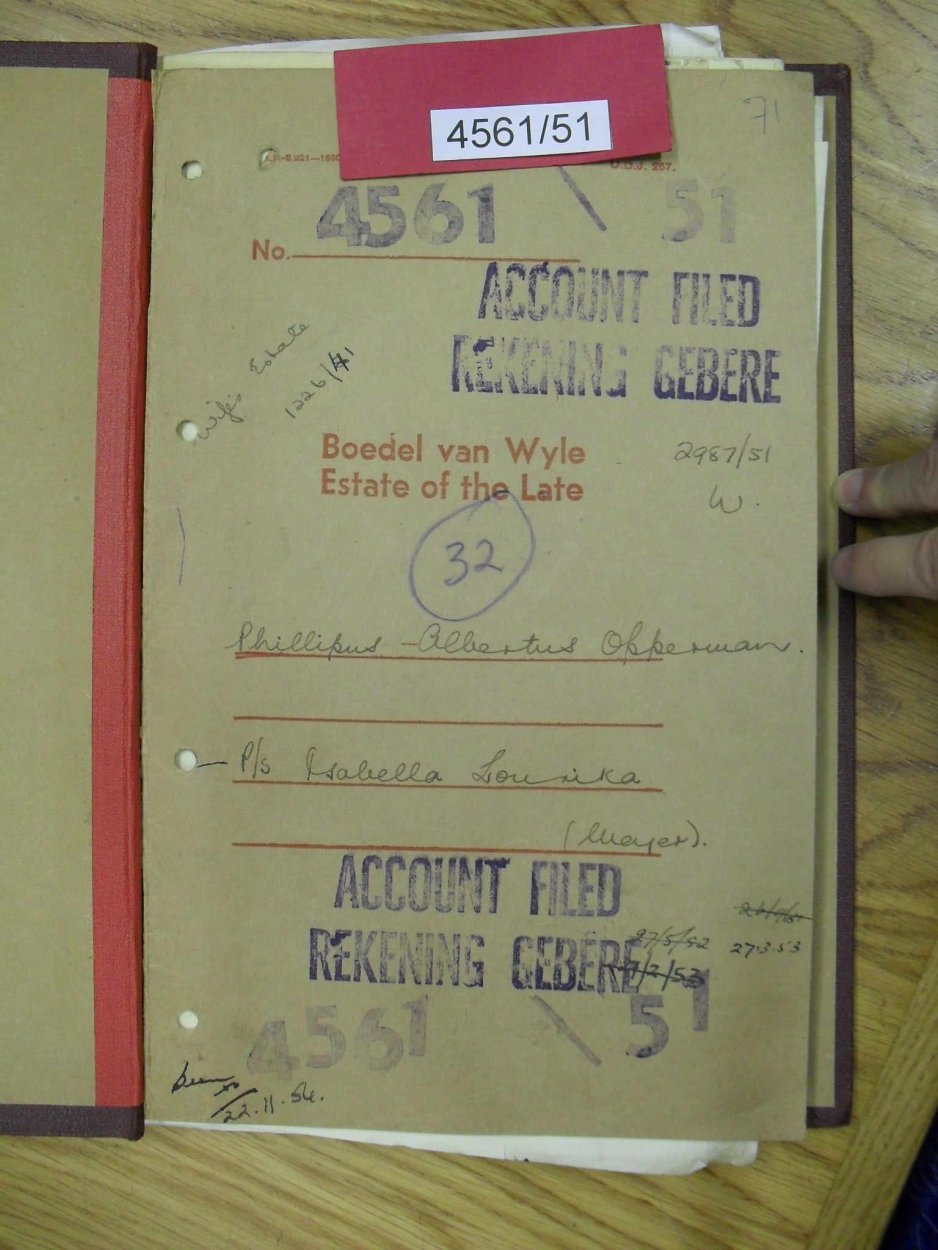 4561/51
71
U.D.J. 257.
4561 \ 51
No.
ACCOUNT FILED
REKENING GEBERE
Wife's Estate
1226/71
Boedel van Wyle
Estate of the Late
2987/51
W.
32
Phillipus Albertus Opperman.
P/s Isabella Lourika
(Mayer).
ACCOUNT FILED
REKENING GEBERE
27/5/52
27.3.53
7/2/53
4561 \ 51
22.11.54.